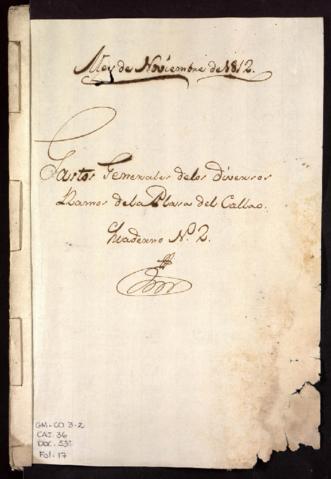 Mes de Noviembre de 1812.
Gastos Generales de los diversos
Ramos de la Plaza del Callao.
Quaderno N.º 2.
GM-CO 3-2
CAJ. 36
DOC. 551
Fol. 17